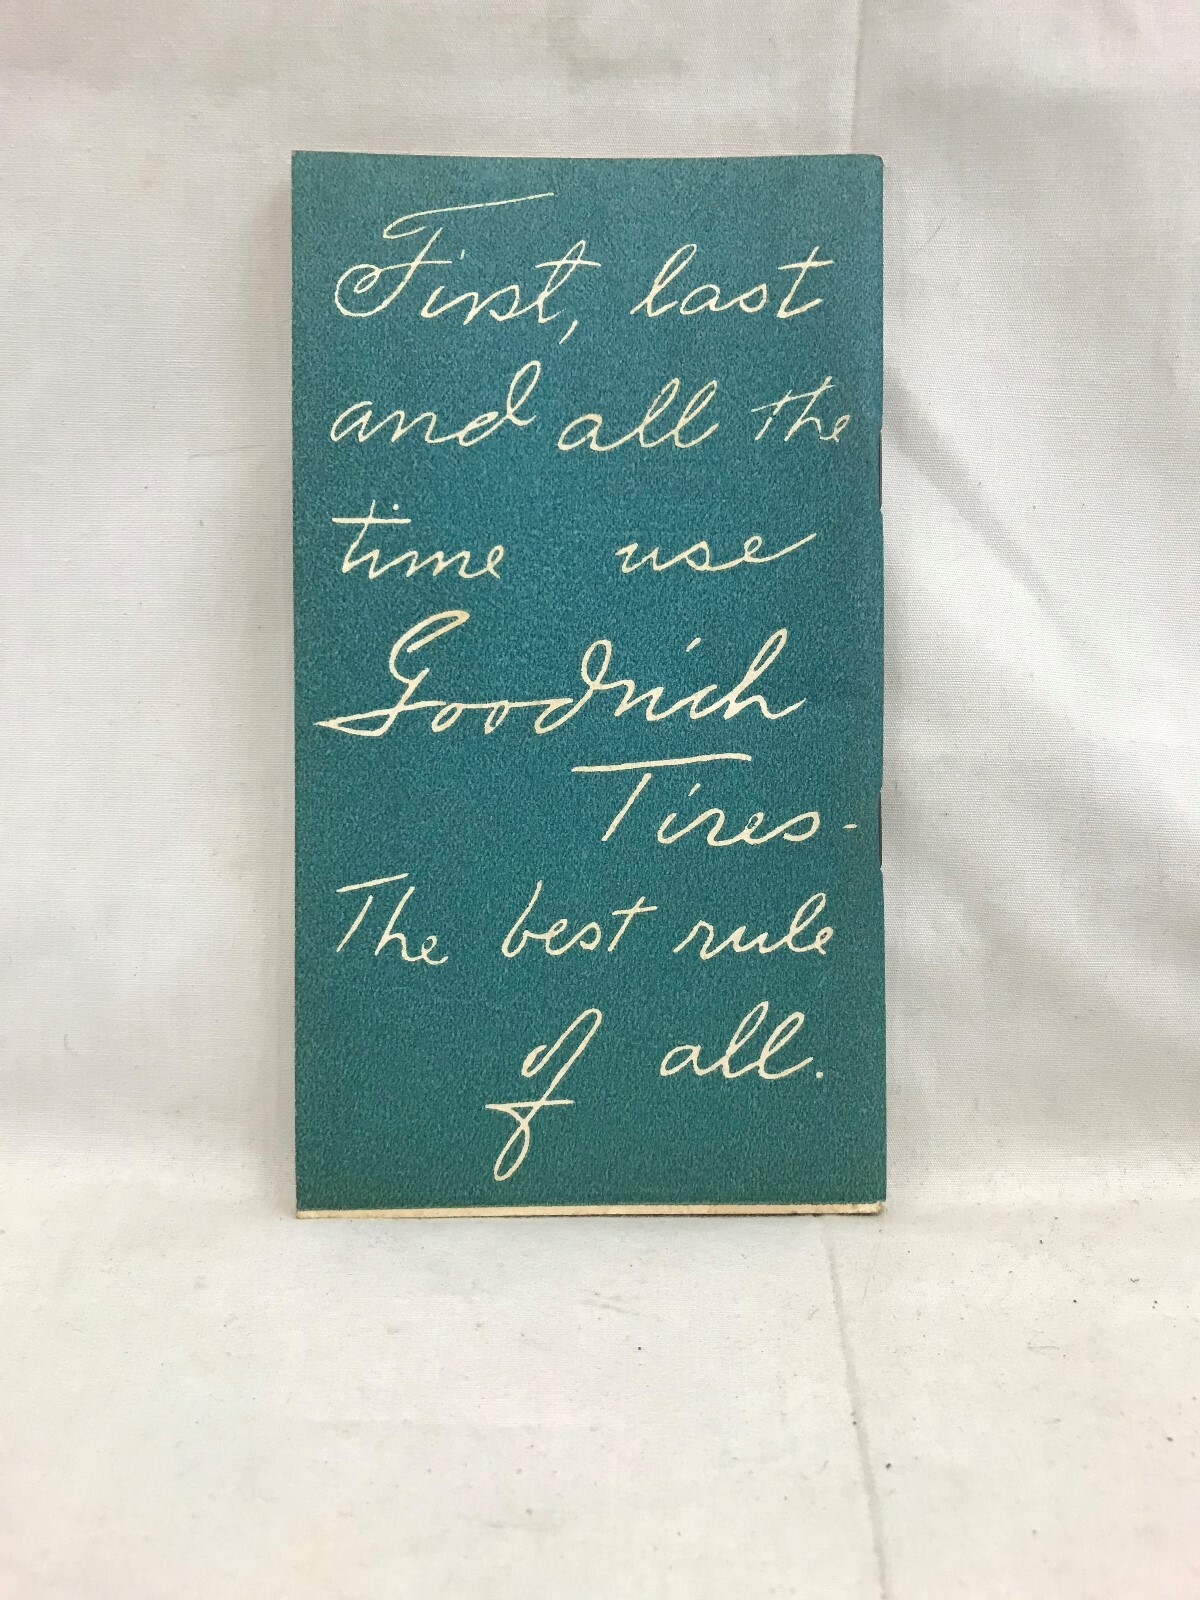 First, last
and all the
time use
Goodrich
Tires-
The best rule
of all.